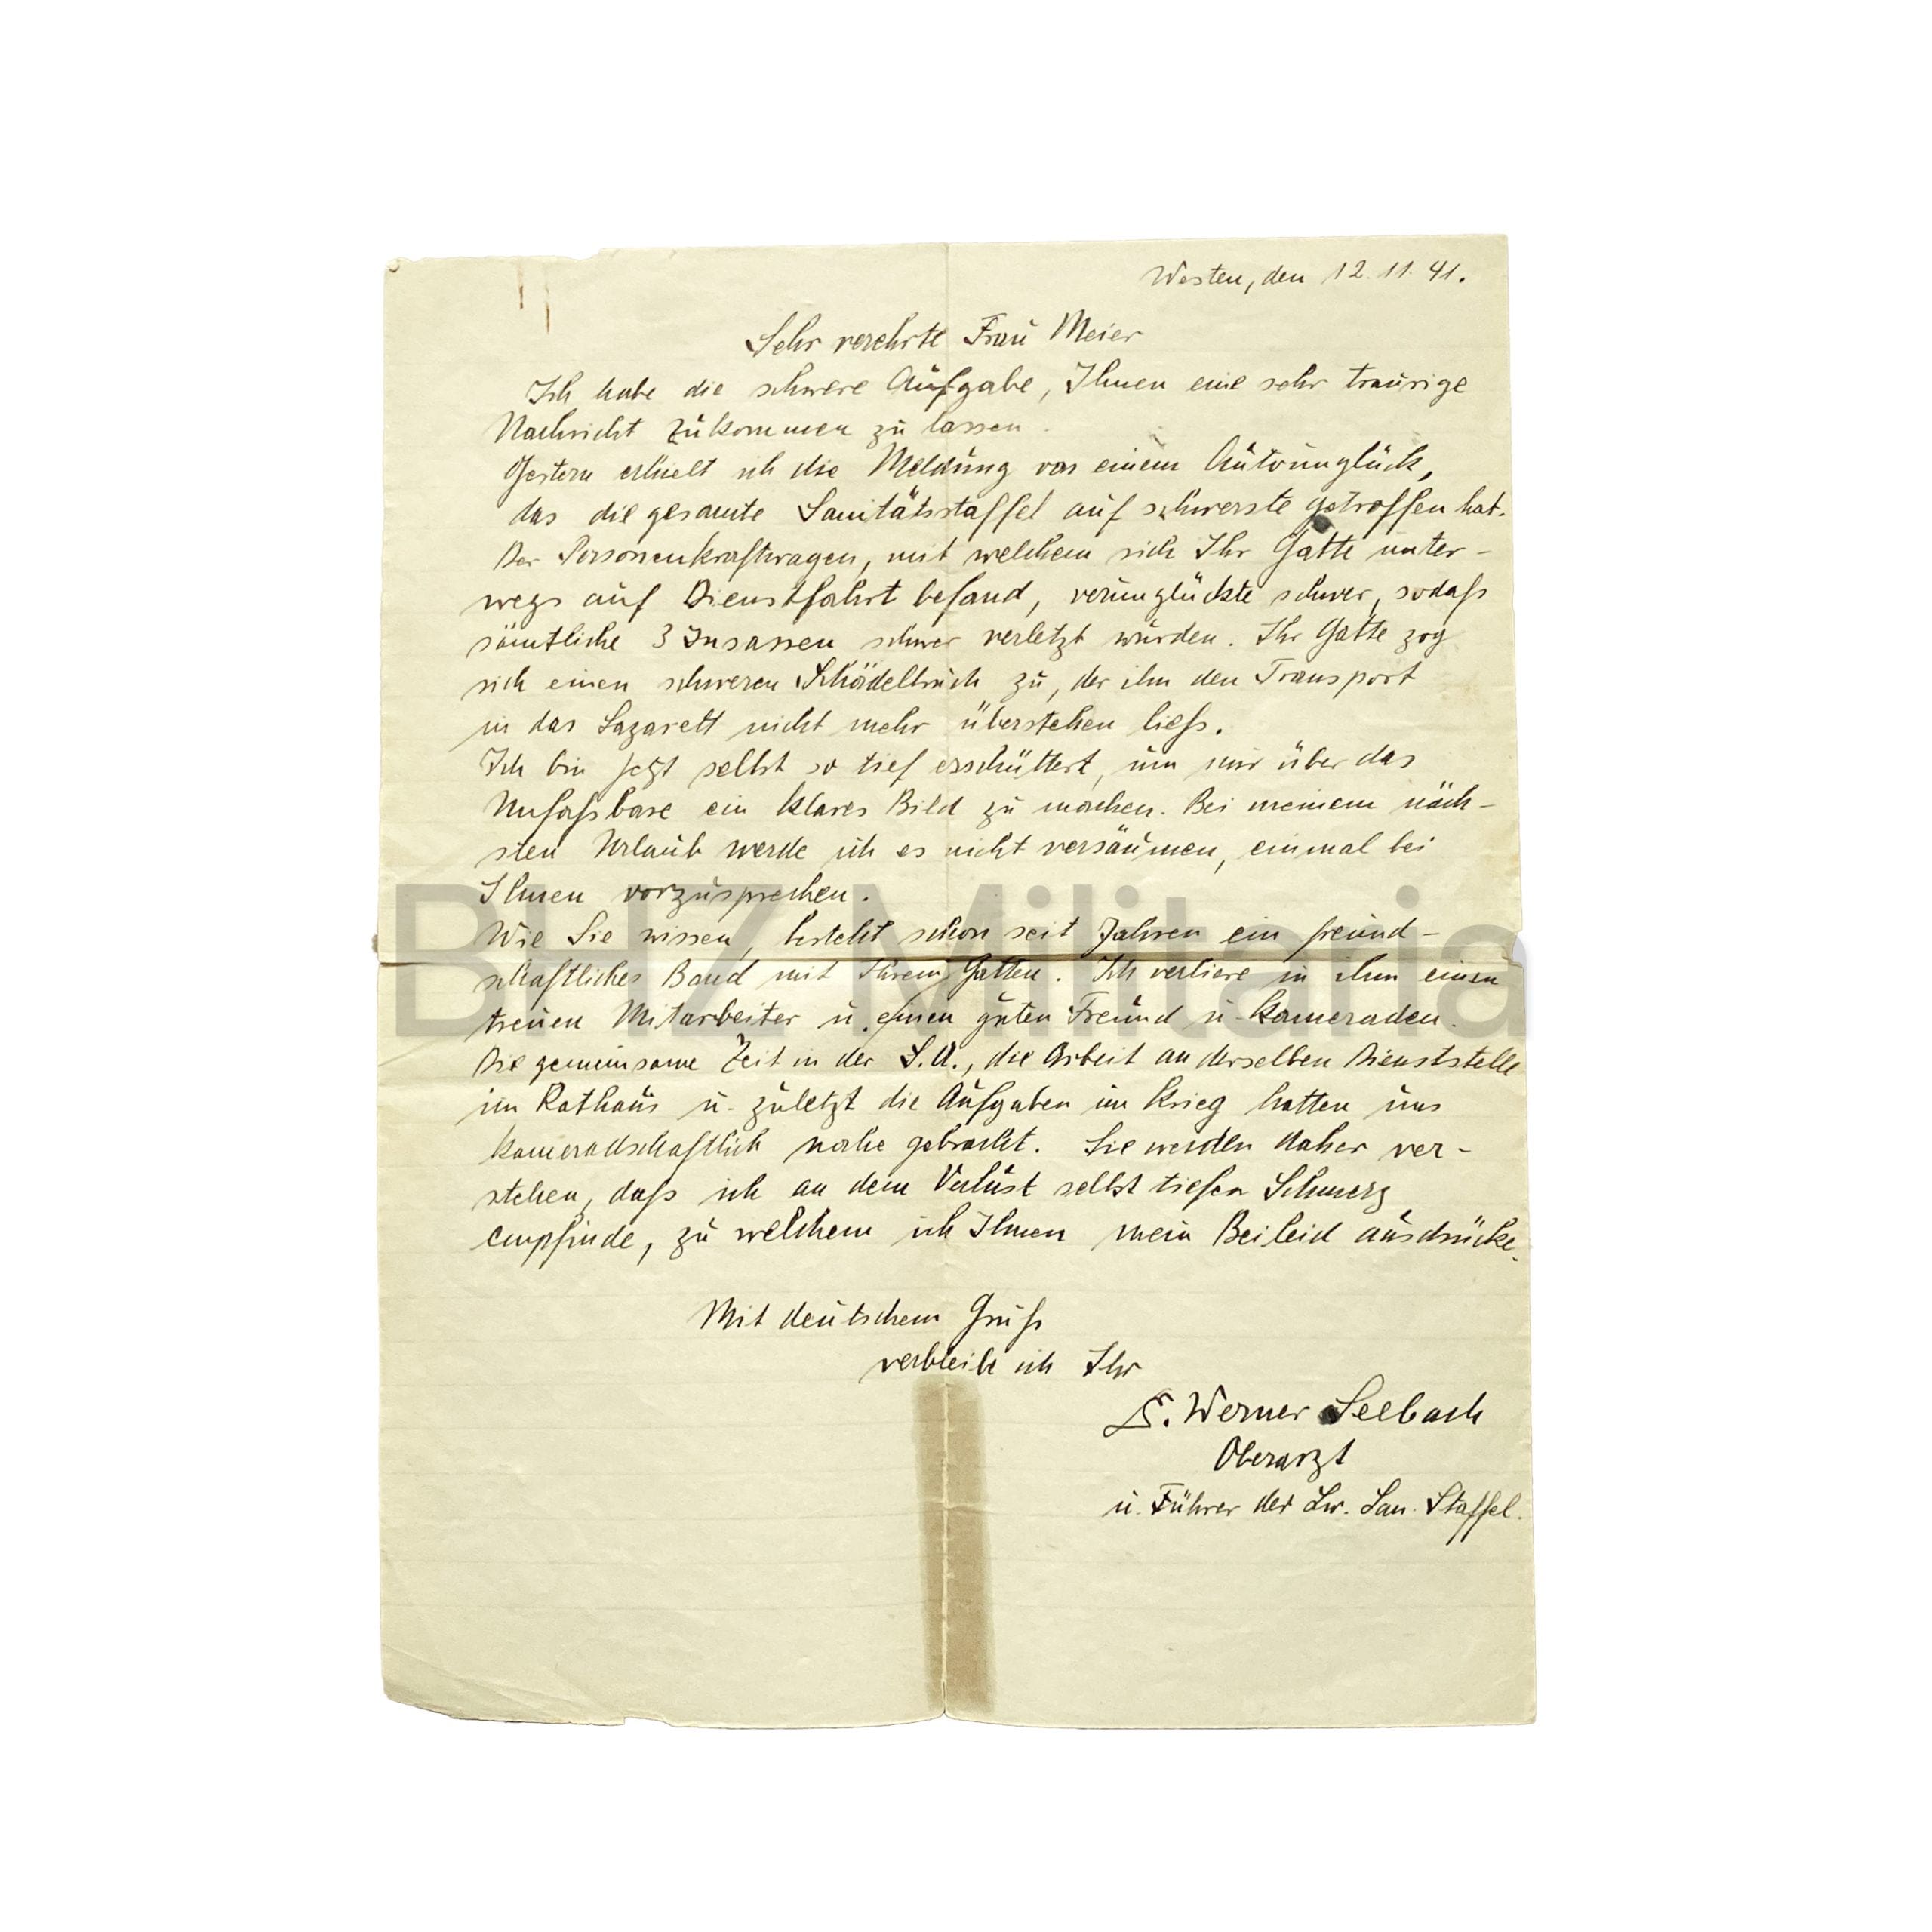 Westen, den 12.11.41.
Sehr verehrte Frau Meier
Ich habe die schwere Aufgabe, Ihnen eine sehr traurige
Nachricht zukommen zu lassen.
Gestern erhielt ich die Meldung von einem Autounglück,
das die gesamte Sanitätsstaffel auf schwerste getroffen hat.
Der Personenkraftwagen, mit welchem sich Ihr Gatte unter-
wegs auf Dienstfahrt befand, verunglückte schwer, sodaß
sämtliche 3 Insassen schwer verletzt wurden. Ihr Gatte zog
sich einen schweren Schädelbruch zu, der ihm den Transport
in das Lazarett nicht mehr überstehen ließ.
Ich bin jetzt selbst so tief erschüttert, um mir über das
Unfaßbare ein klares Bild zu machen. Bei meinem näch-
sten Urlaub werde ich es nicht versäumen, einmal bei
Ihnen vorzusprechen.
BHZ Militaria
Wie Sie wissen, besteht schon seit Jahren ein freund-
schaftliches Band mit Ihrem Gatten. Ich verliere in ihm einen
treuen Mitarbeiter u. einen guten Freund u. Kameraden.
Die gemeinsame Zeit in der S.A., die Arbeit an derselben Dienststelle
im Rathaus u. zuletzt die Aufgaben im Krieg hatten uns
kameradschaftlich nahe gebracht. Sie werden daher ver-
stehen, daß ich an dem Verlust selbst tiefen Schmerz
empfinde, zu welchem ich Ihnen mein Beileid ausdrücke.
Mit deutschem Gruß
verbleibe ich Ihr
Werner Seebach
Oberarzt
u. Führer der Lw. San. Staffel.